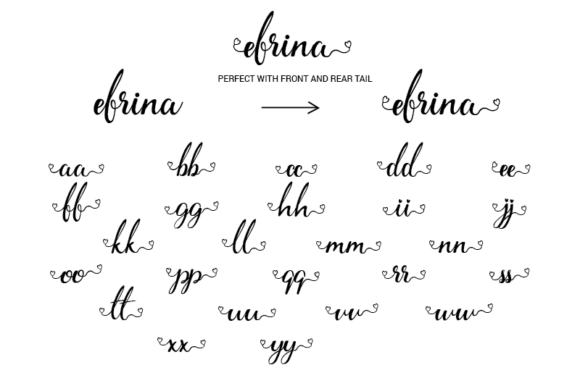 efrina
PERFECT WITH FRONT AND REAR TAIL
efrina efrina
aa bb cc dd ee
ff gg hh ii jj
kk ll mm nn
oo pp qq rr ss
tt uu vv ww
xx yy